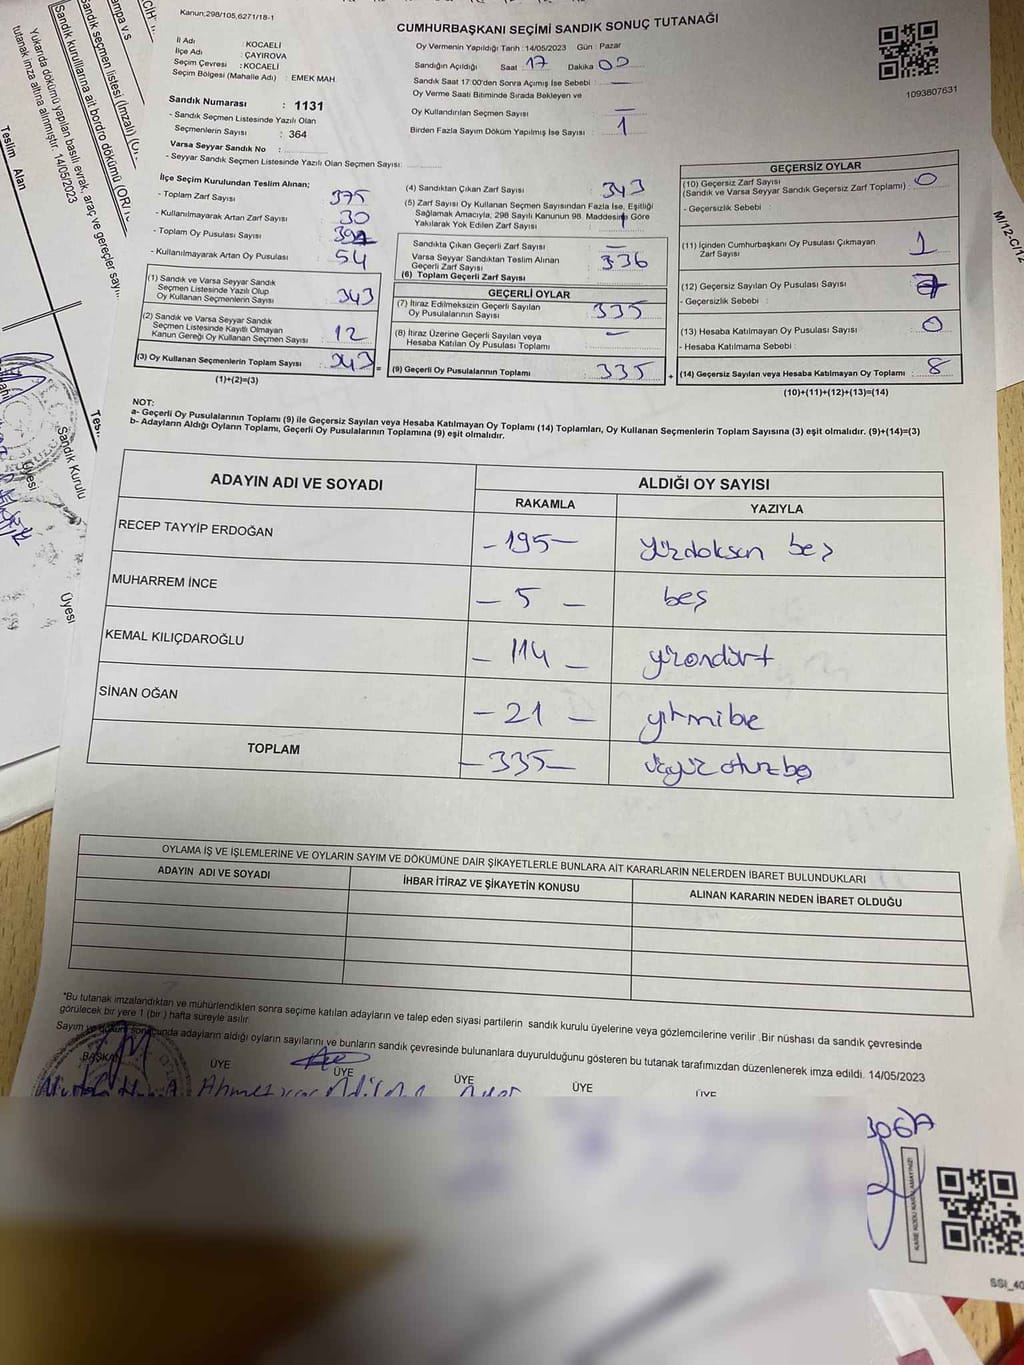 Kanun:298/105,6271/18-1
CUMHURBAŞKANI SEÇİMİ SANDIK SONUÇ TUTANAĞI
İl Adı : KOCAELİ
İlçe Adı : ÇAYIROVA
Seçim Çevresi : KOCAELİ
Seçim Bölgesi (Mahalle Adı) : EMEK MAH
Sandık Numarası : 1131
- Sandık Seçmen Listesinde Yazılı Olan
Seçmenlerin Sayısı : 364
Varsa Seyyar Sandık No :
- Seyyar Sandık Seçmen Listesinde Yazılı Olan Seçmen Sayısı:
Oy Vermenin Yapıldığı Tarih :14/05/2023 Gün : Pazar
Sandığın Açıldığı Saat 17 Dakika 00
Sandık Saat 17:00'den Sonra Açımış İse Sebebi : —
Oy Verme Saati Bitiminde Sırada Bekleyen ve
Oy Kullandırılan Seçmen Sayısı : —
Birden Fazla Sayım Döküm Yapılmış İse Sayısı : 1
1093807631
İlçe Seçim Kurulundan Teslim Alınan;
- Toplam Zarf Sayısı : 375
- Kullanılmayarak Artan Zarf Sayısı : 30
- Toplam Oy Pusulası Sayısı
- Kullanılmayarak Artan Oy Pusulası : 54
(1) Sandık ve Varsa Seyyar Sandık
Seçmen Listesinde Yazılı Olup
Oy Kullanan Seçmenlerin Sayısı : 343
(2) Sandık ve Varsa Seyyar Sandık
Seçmen Listesinde Kayıtlı Olmayan
Kanun Gereği Oy Kullanan Seçmen Sayısı : 12
(3) Oy Kullanan Seçmenlerin Toplam Sayısı : 343
(1)+(2)=(3)
(4) Sandıktan Çıkan Zarf Sayısı : 343
(5) Zarf Sayısı Oy Kullanan Seçmen Sayısından Fazla İse, Eşitliği
Sağlamak Amacıyla, 298 Sayılı Kanunun 98. Maddesine Göre
Yakılarak Yok Edilen Zarf Sayısı :
Sandıkta Çıkan Geçerli Zarf Sayısı : —
Varsa Seyyar Sandıktan Teslim Alınan
Geçerli Zarf Sayısı : 336
(6) Toplam Geçerli Zarf Sayısı
GEÇERLİ OYLAR
(7) İtiraz Edilmeksizin Geçerli Sayılan
Oy Pusulalarının Sayısı : 335
(8) İtiraz Üzerine Geçerli Sayılan veya
Hesaba Katılan Oy Pusulası Toplamı : —
(9) Geçerli Oy Pusulalarının Toplamı : 335
GEÇERSİZ OYLAR
(10) Geçersiz Zarf Sayısı
(Sandık ve Varsa Seyyar Sandık Geçersiz Zarf Toplamı) : 0
- Geçersizlik Sebebi :
(11) İçinden Cumhurbaşkanı Oy Pusulası Çıkmayan
Zarf Sayısı : 1
(12) Geçersiz Sayılan Oy Pusulası Sayısı : 7
- Geçersizlik Sebebi :
(13) Hesaba Katılmayan Oy Pusulası Sayısı : 0
- Hesaba Katılmama Sebebi :
(14) Geçersiz Sayılan veya Hesaba Katılmayan Oy Toplamı : 8
(10)+(11)+(12)+(13)=(14)
NOT:
a- Geçerli Oy Pusulalarının Toplamı (9) ile Geçersiz Sayılan veya Hesaba Katılmayan Oy Toplamı (14) Toplamları, Oy Kullanan Seçmenlerin Toplam Sayısına (3) eşit olmalıdır. (9)+(14)=(3)
b- Adayların Aldığı Oyların Toplamı, Geçerli Oy Pusulalarının Toplamına (9) eşit olmalıdır.
ADAYIN ADI VE SOYADI ALDIĞI OY SAYISI
RAKAMLA YAZIYLA
RECEP TAYYİP ERDOĞAN - 195 - yüzdoksan beş
MUHARREM İNCE - 5 - beş
KEMAL KILIÇDAROĞLU - 114 - yüzondört
SİNAN OĞAN - 21 - yirmibir
TOPLAM - 335 - üçyüz otuzbeş
OYLAMA İŞ VE İŞLEMLERİNE VE OYLARIN SAYIM VE DÖKÜMÜNE DAİR ŞİKAYETLERLE BUNLARA AİT KARARLARIN NELERDEN İBARET BULUNDUKLARI
ADAYIN ADI VE SOYADI İHBAR İTİRAZ VE ŞİKAYETİN KONUSU ALINAN KARARIN NEDEN İBARET OLDUĞU
*Bu tutanak imzalandıktan ve mühürlendikten sonra seçime katılan adayların ve talep eden siyasi partilerin sandık kurulu üyelerine veya gözlemcilerine verilir .Bir nüshası da sandık çevresinde
görülecek bir yere 1 (bir ) hafta süreyle asılır.
Sayım ve döküm sonucunda adayların aldığı oyların sayılarını ve bunların sandık çevresinde bulunanlara duyurulduğunu gösteren bu tutanak tarafımızdan düzenlenerek imza edildi. 14/05/2023
BAŞKAN ÜYE ÜYE ÜYE ÜYE ÜYE
KARE KODU KARALAMAYINIZ!
SSI_40
M/12-C/12
Sandık seçmen listesi (İmzalı)
Sandık kurullarına ait bordro dökümü
Yukarıda dökümü yapılan basılı evrak, araç ve gereçler
tutanak imza altına alınmıştır. 14/05/2023
Teslim Alan
Sandık Kurulu
Üyesi
Üyesi